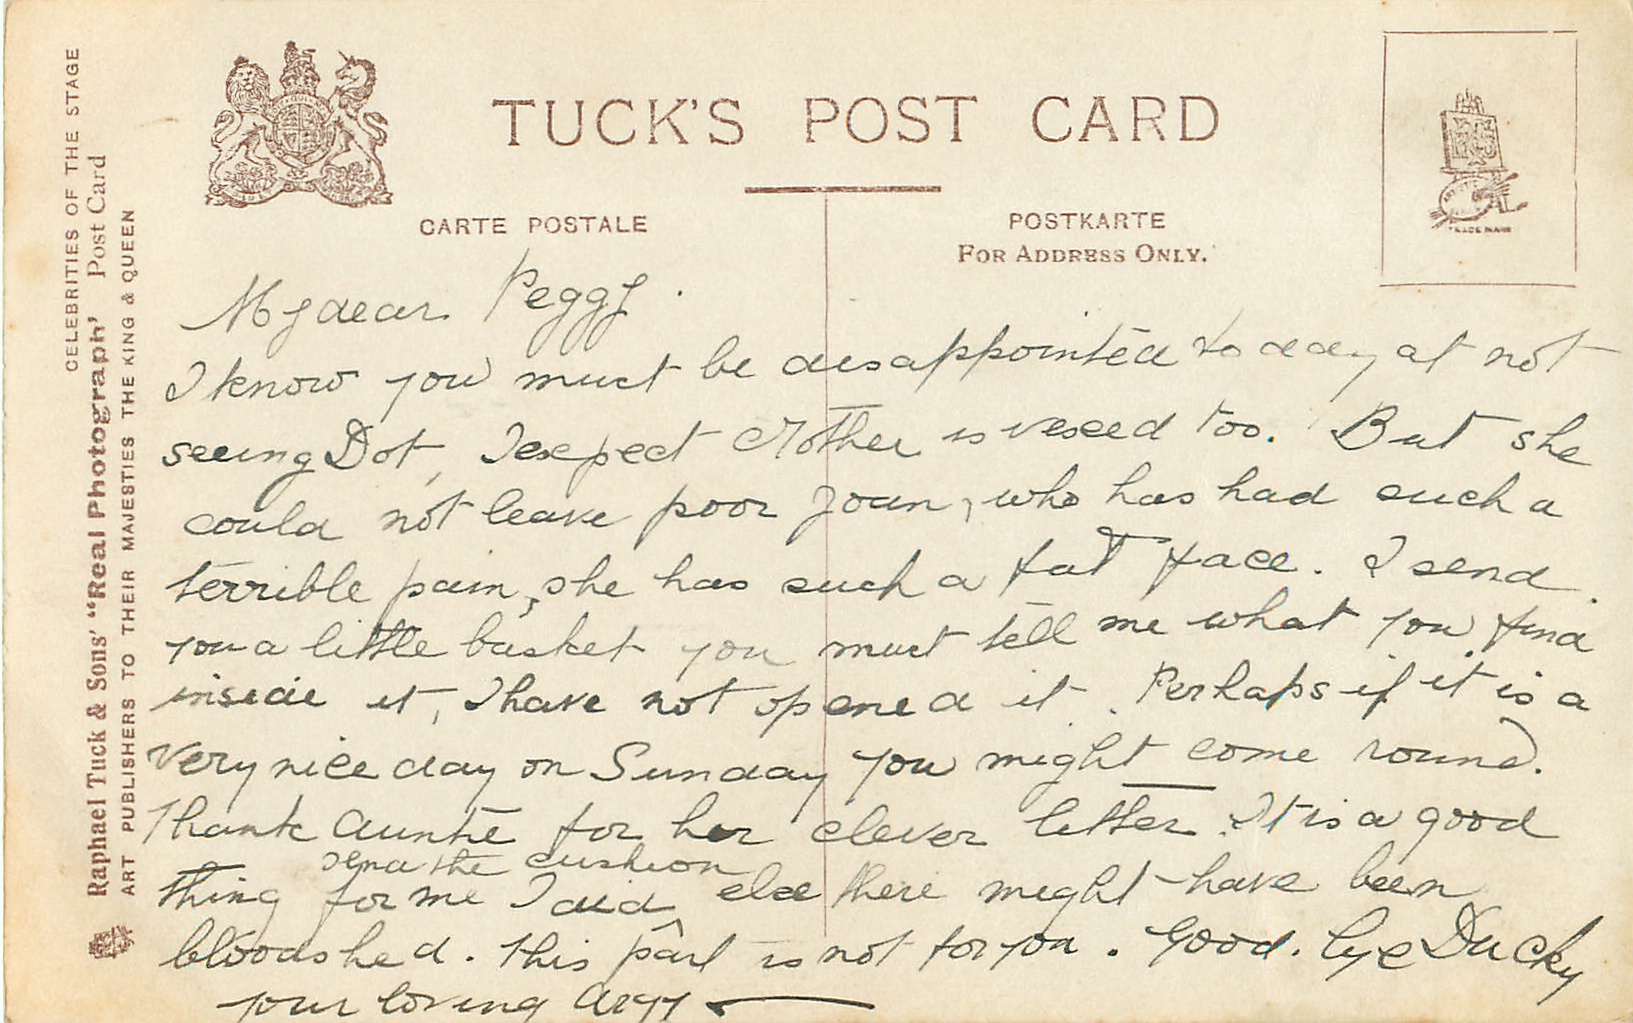 TUCK'S POST CARD
CARTE POSTALE
POSTKARTE
FOR ADDRESS ONLY.
TRADE MARK
CELEBRITIES OF THE STAGE
Raphael Tuck & Sons' "Real Photograph" Post Card
ART PUBLISHERS TO THEIR MAJESTIES THE KING & QUEEN
My dear Peggy.
I know you must be disappointed to day at not
seeing Dot, I expect Mother is vexed too. But she
could not leave poor Joan, who has had such a
terrible pain, she has such a fat face. I send
you a little basket you must tell me what you find
inside it, I have not opened it. Perhaps if it is a
very nice day on Sunday you might come round.
Thank Auntie for her clever letter. It is a good
send the cushion
thing for me I did else there might have been
bloodshed. This part is not for you. Good. bye Ducky
your loving